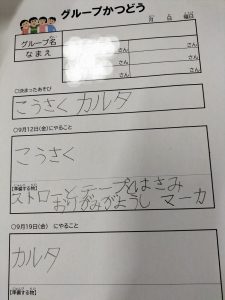 グループかつどう
月 日 曜日
グループ名
なまえ
さん さん
さん さん
さん
○決まったあそび
こうさく カルタ
○9月12日(金)にやること
こうさく
【準備する物】
ストローとテープとはさみ
おりがみがようし マーカ
○9月19日(金) にやること
カルタ
【準備する物】